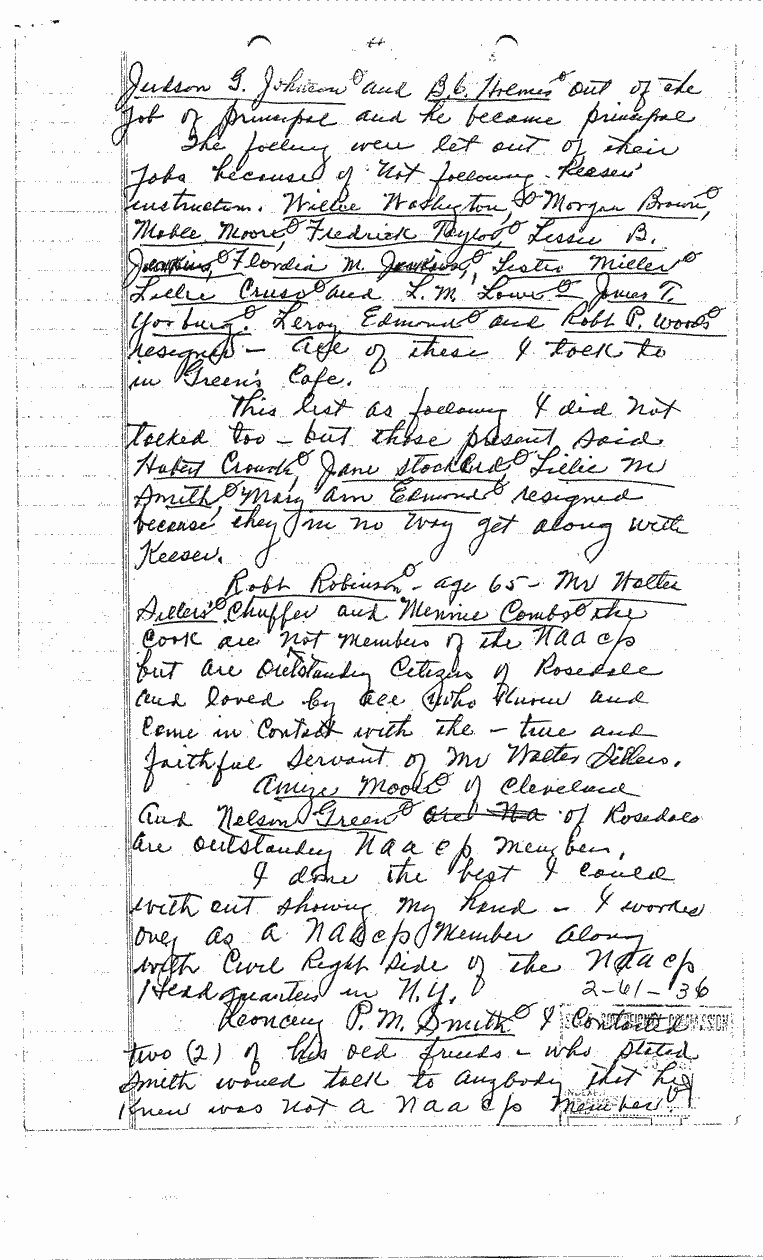 Judson G. Johnson and B.C. Holmes out of the
job of principal and he became principal
The folling were let out of their
Jobs because of Not following Keeser'
instruction. Willie Washington, Morgan Brown,
Mable Moore, Fredrick Taylor, Lessie B.
Jenkins, Flordia M. Jenkins, Lester Miller
Lillie Cruso and L.M. Lowe - James T.
Yorburg. Leroy Edmond and Robt P. Woods
resigned - all of these I talk to
in Green's Cafe.
This list as following I did not
talked too - but those present said
Hubert Crouch, Jane Stockard, Lillie M
Smith, Mary Ann Edmond resigned
because they in no way get along with
Keeser.
Robt Robinson - age 65 - Mr Walter
Sillers' Chuffer and Mennie Combs the
Cook are not members of the NAACP
but are outstanding Citizens of Rosedale
and loved by all who know and
Come in Contact with the - true and
faithful servant of Mr Walter Sillers.
Amize Moore of Cleveland
And Nelson Green are Na of Rosedale
are outstanding NAACP members.
I done the best I could
with out showing my hand - I worked
only as a NAACP Member along
with Civil Right side of the NAACP
Headquarters in N.Y. 2-61-36
P.M. Smith I Contacted
two (2) of his old friends - who stated
Smith would talk to anybody that he
Knew was not a NAACP member.